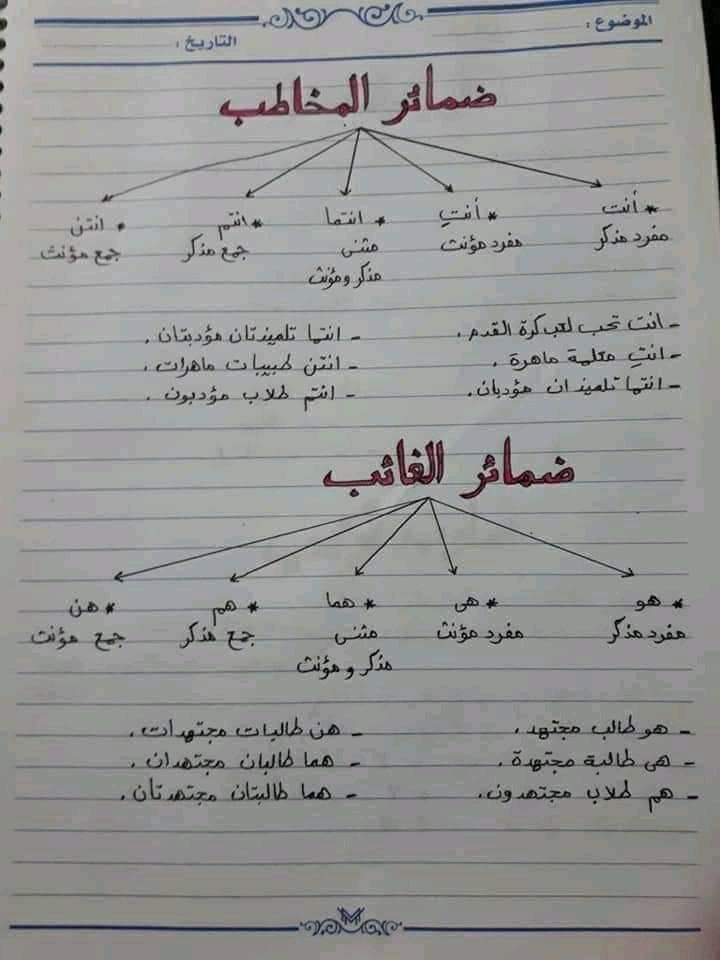 الموضوع :
التاريخ :
ضمائر المخاطب
* أنت * أنتِ * انتما * انتم * انتن
مفرد مذكر مفرد مؤنث مثنى جمع مذكر جمع مؤنث
مذكر و مؤنث
- انت تحب لعب كرة القدم . - انتما تلميذتان مؤدبتان .
- انتِ معلمة ماهرة . - انتن طبيبات ماهرات .
- انتما تلميذان مؤدبان . - انتم طلاب مؤدبون .
ضمائر الغائب
* هو * هى * هما * هم * هن
مفرد مذكر مفرد مؤنث مثنى جمع مذكر جمع مؤنث
مذكر و مؤنث
- هو طالب مجتهد . - هن طالبات مجتهدات .
- هى طالبة مجتهدة . - هما طالبان مجتهدان .
- هم طلاب مجتهدون . - هما طالبتان مجتهدتان .